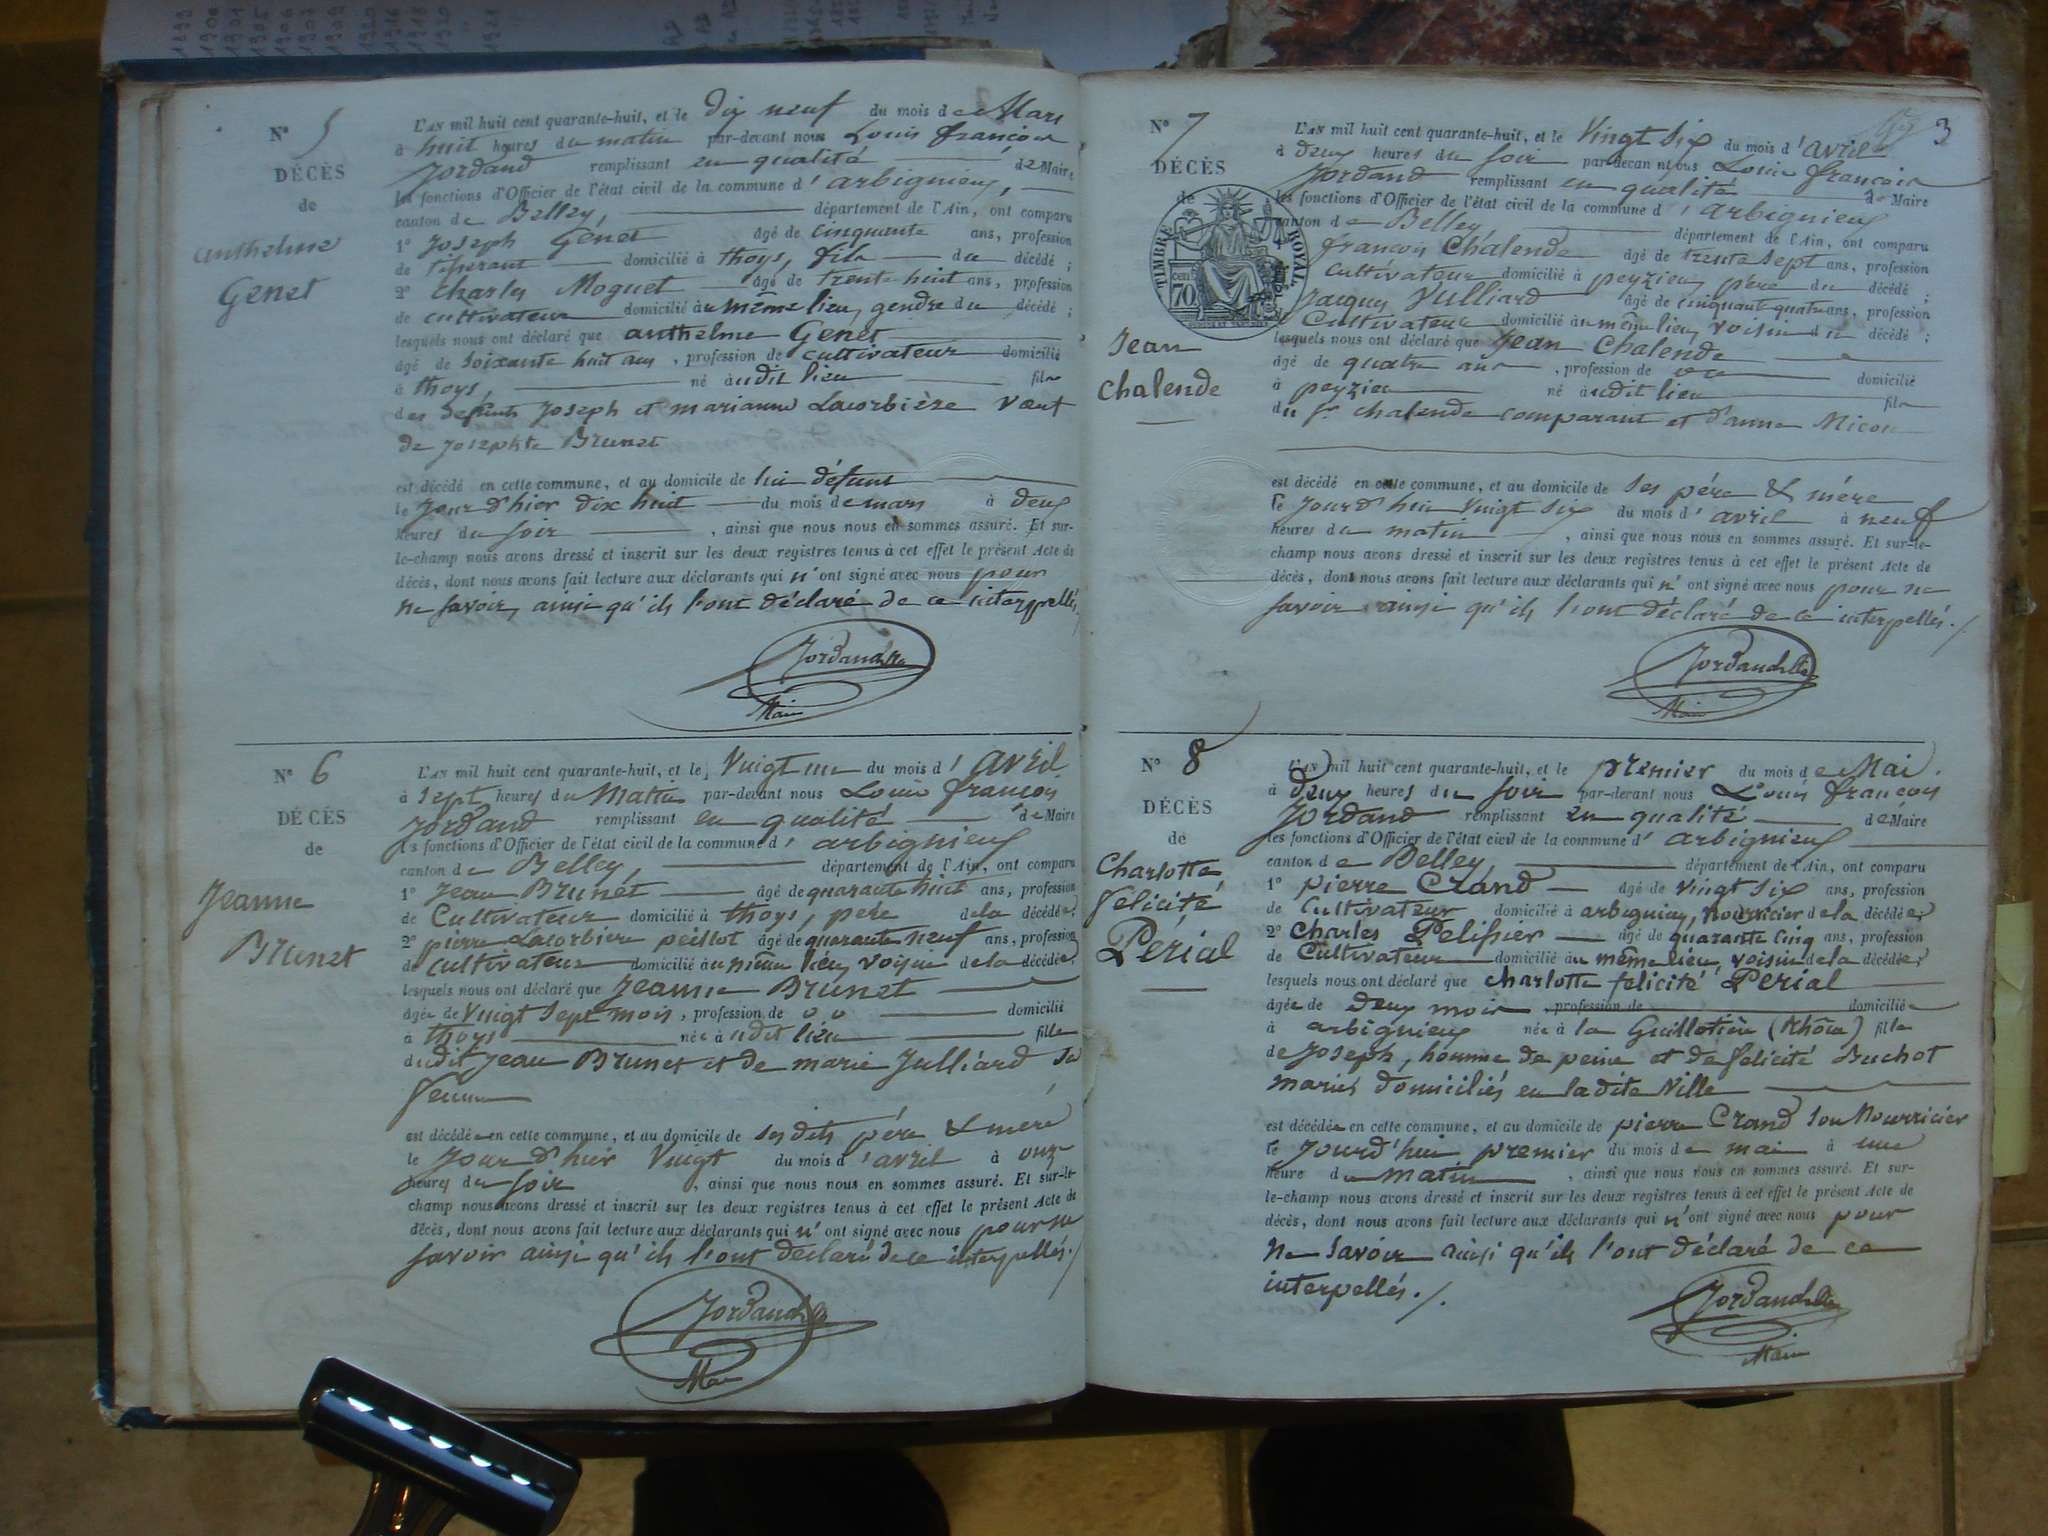 N° 5
DÉCÈS
de
anthelme
Genet
L'AN mil huit cent quarante-huit, et le dix neuf du mois de Mars
à huit heures du matin par-devant nous Louis françois
Jordand remplissant en qualité de Maire
les fonctions d'Officier de l'état civil de la commune d'arbignieux,
canton de Belley, département de l'Ain, ont comparu
1° Joseph Genet âgé de cinquante ans, profession
de tisserant domicilié à thoys, fils du décédé ;
2° Charles Moguet âgé de trente huit ans, profession
de cultivateur domicilié au même lieu, gendre du décédé ;
lesquels nous ont déclaré que anthelme Genet
âgé de soixante huit ans, profession de cultivateur domicilié
à thoys, né audit lieu fils
des défunts Joseph et marianne Lacorbière Veuf
de Josephte Brunet
est décédé en cette commune, et au domicile de lui défunt
le jour d'hier dix huit du mois de mars à deux
heures du soir, ainsi que nous nous en sommes assuré. Et sur-
le-champ nous avons dressé et inscrit sur les deux registres tenus à cet effet le présent Acte de
décès, dont nous avons fait lecture aux déclarants qui n'ont signé avec nous pour
ne savoir, ainsi qu'ils l'ont déclaré de ce interpellés
Jordand
Maire
N° 6
DÉCÈS
de
Jeanne
Brunet
L'AN mil huit cent quarante-huit, et le Vingt un du mois d'avril
à sept heures du Matin par-devant nous Louis françois
Jordand remplissant en qualité de Maire
les fonctions d'Officier de l'état civil de la commune d'arbignieux
canton de Belley, département de l'Ain, ont comparu
1° Jean Brunet âgé de quarante huit ans, profession
de Cultivateur domicilié à thoys, père de la décédée ;
2° pierre Lacorbière peillot âgé de quarante neuf ans, profession
de cultivateur domicilié au même lieu, voisin de la décédée ;
lesquels nous ont déclaré que Jeanne Brunet
âgée de Vingt sept mois, profession de domicilié
à thoys née audit lieu fille
dudit Jean Brunet et de marie Julliard sa
femme
est décédée en cette commune, et au domicile de ses dits père & mère
le jour d'hier Vingt du mois d'avril à onze
heures du soir, ainsi que nous nous en sommes assuré. Et sur-le-
champ nous avons dressé et inscrit sur les deux registres tenus à cet effet le présent Acte de
décès, dont nous avons fait lecture aux déclarants qui n'ont signé avec nous pour ne
savoir ainsi qu'ils l'ont déclaré de ce interpellés./
Jordand
Maire
3
N° 7
DÉCÈS
de
TIMBRE ROYAL
70
Jean
Chalende
L'AN mil huit cent quarante-huit, et le Vingt six du mois d'avril
à deux heures du soir par-devant nous Louis françois
Jordand remplissant en qualité de Maire
les fonctions d'Officier de l'état civil de la commune d'arbignieux
canton de Belley département de l'Ain, ont comparu
françois Chalende âgé de trente sept ans, profession
Cultivateur domicilié à peyzieu, père du décédé ;
Jacques Vulliard âgé de cinquante quatre ans, profession
de Cultivateur domicilié au même lieu, voisin du décédé ;
lesquels nous ont déclaré que Jean Chalende
âgé de quatre ans, profession de domicilié
à peyzieu né audit lieu fils
du f. chalende comparant et d'anne Micou
est décédé en cette commune, et au domicile de ses père & mère
le jourd'hui Vingt six du mois d'avril à neuf
heures du matin, ainsi que nous nous en sommes assuré. Et sur-le-
champ nous avons dressé et inscrit sur les deux registres tenus à cet effet le présent Acte de
décès, dont nous avons fait lecture aux déclarants qui n'ont signé avec nous pour ne
savoir ainsi qu'ils l'ont déclaré de ce interpellés./
Jordand
Maire
N° 8
DÉCÈS
de
Charlotte
félicité
Périal
L'AN mil huit cent quarante-huit, et le premier du mois de Mai.
à Deux heures du soir par-devant nous Louis françois
Jordand remplissant en qualité de Maire
les fonctions d'Officier de l'état civil de la commune d'arbignieux
canton de Belley département de l'Ain, ont comparu
1° pierre Crand âgé de vingt six ans, profession
de Cultivateur domicilié à arbignieu, nourricier de la décédée ;
2° Charles Pelissier âgé de quarante cinq ans, profession
de Cultivateur domicilié au même lieu, voisin de la décédée ;
lesquels nous ont déclaré que charlotte felicité Perial
âgée de deux mois, profession de domiciliée
à arbignieux née à la Guillotière (Rhône) fille
de Joseph, homme de peine et de felicité Buchot
mariés domiciliés en ladite Ville
est décédée en cette commune, et au domicile de pierre Crand son Nourricier
le jourd'hui premier du mois de mai à une
heure du matin, ainsi que nous nous en sommes assuré. Et sur-
le-champ nous avons dressé et inscrit sur les deux registres tenus à cet effet le présent Acte de
décès, dont nous avons fait lecture aux déclarants qui n'ont signé avec nous pour
ne savoir ainsi qu'ils l'ont déclaré de ce
interpellés./
Jordand
Maire